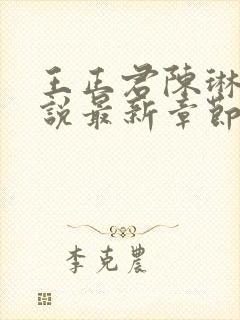 王正君陳琳
說最新章節
李克農